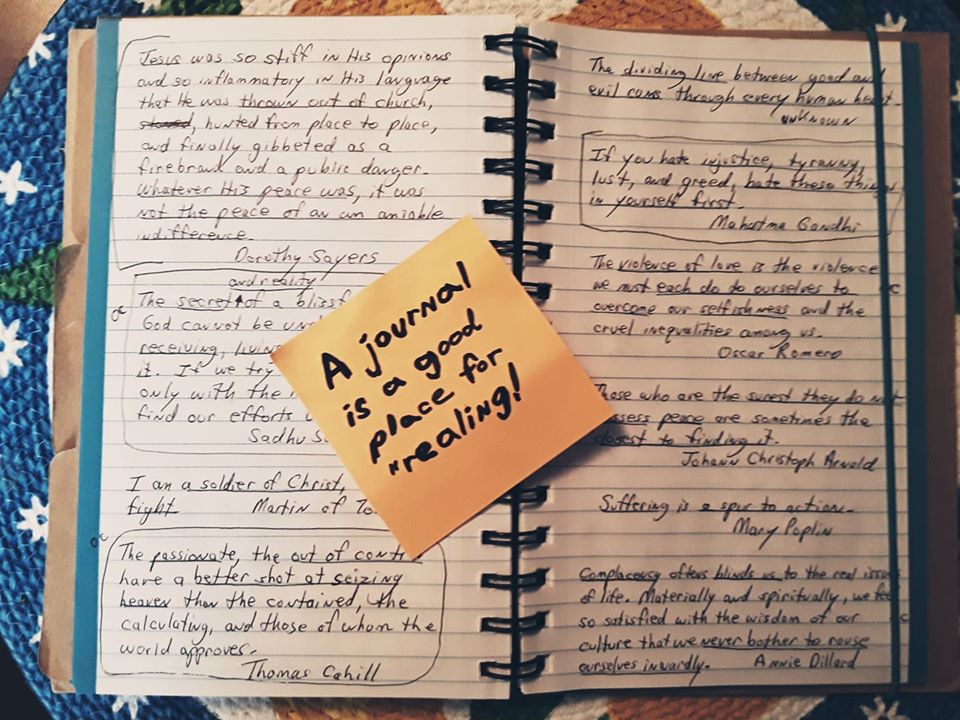 Jesus was so stiff in His opinions
and so inflammatory in His language
that He was thrown out of church,
stoned, hunted from place to place,
and finally gibbeted as a
firebrand and a public danger.
Whatever His peace was, it was
not the peace of an an amiable
indifference.
Dorothy Sayers
and reality
The secret of a bliss
God cannot be un
receiving, living
it. If we try
only with the
find our efforts
Sadhu S
I am a soldier of Christ,
fight
Martin of To
The passionate, the out of cont
have a better shot at seizing
heaven than the contained, the
calculating, and those of whom the
world approves.
Thomas Cahill
A journal
is a good
place for
"realing!
The dividing line between good and
evil runs through every human heart.
unknown
If you hate injustice, tyranny,
lust, and greed, hate these things
in yourself first.
Mahatma Gandhi
The violence of love is the violence
we must each do do ourselves to
overcome our selfishness and the
cruel inequalities among us.
Oscar Romero
Those who are the surest they do not
possess peace are sometimes the
closest to finding it.
Johann Christoph Arnold
Suffering is a spur to action.
Mary Poplin
Complacency often blinds us to the real issues
of life. Materially and spiritually, we feel
so satisfied with the wisdom of our
culture that we never bother to rouse
ourselves inwardly. Annie Dillard